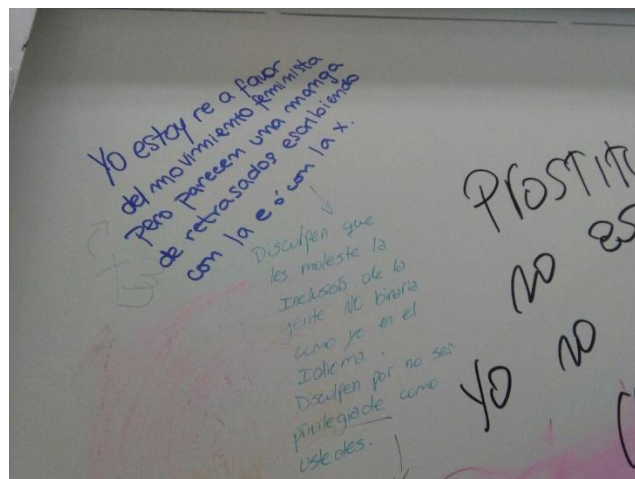 Yo estoy re a favor
del movimiento feminista
pero parecen una manga
de retrasados escribiendo
con la e ó con la x.
Disculpen que
les moleste la
Inclusión de la
gente NC binaria
como yo en el
Idioma.
Disculpen por no ser
privilegiade como
ustedes.
PROSTITU
no es
Yo no